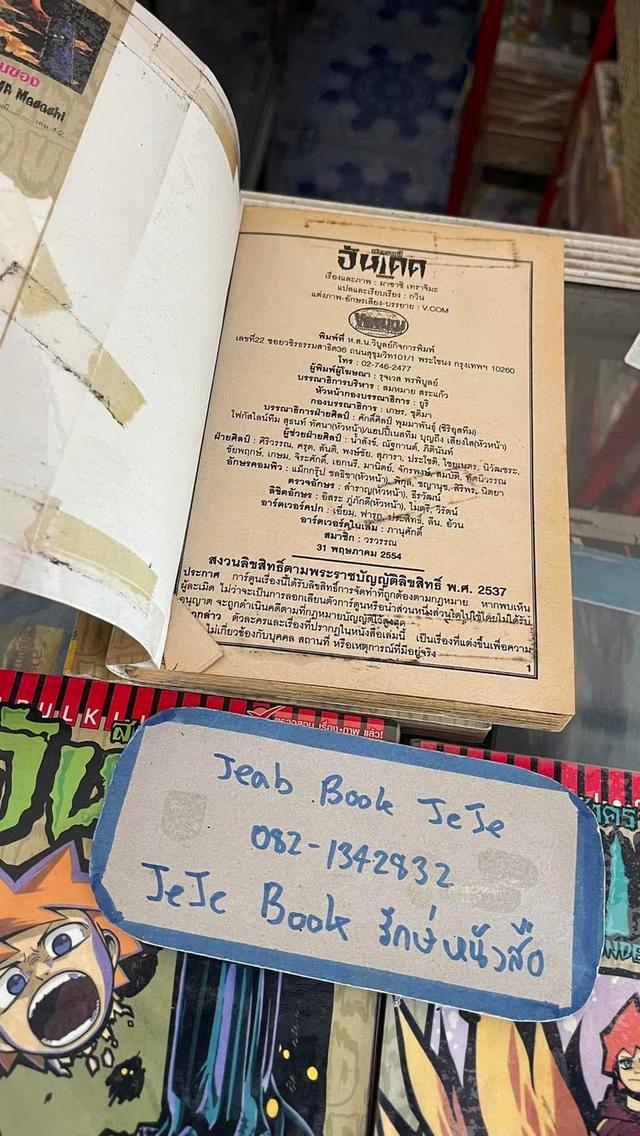 Masashi
เล่ม 1-2
อันเดด
เรื่องและภาพ : มาซาชิ เทราจิมะ
แปลและเรียบเรียง : กวิน
แต่งภาพ-อักษรเสียง-บรรยาย : V.COM
พิมพ์ที่ ห.ส.น.วิบูลย์กิจการพิมพ์
เลขที่22 ซอยวชิรธรรมสาธิต36 ถนนสุขุมวิท101/1 พระโขนง กรุงเทพฯ 10260
โทร : 02-746-2477
ผู้พิมพ์ผู้โฆษณา : รุจเวส พรพิบูลย์
บรรณาธิการบริหาร : สมหมาย สระแก้ว
หัวหน้ากองบรรณาธิการ : ยูริ
กองบรรณาธิการ : เกษร, ชุติมา
บรรณาธิการฝ่ายศิลป์ : ศักดิ์ศิลป์ พุ่มมาพันธุ์ (ซิริอุสทีม)
โฟกัสไลน์ทีม สุธนท์ ทัศนา(หัวหน้า)/แฮปปี้เนสทีม บุญถึง เสียงใส(หัวหน้า)
ผู้ช่วยฝ่ายศิลป์ : น้ำสังข์, ณัฐกานต์, ภิตินันท์
ฝ่ายศิลป์ : ศิริวรรณ, ศรุต, สันติ, พงษ์ชัย, สุภารา, ประโชติ, ไชยเนตร, นิวัฒชระ,
ชัยพฤกษ์, เกษม, จิระศักดิ์, เอกนรี, มานิตย์, จักรพงษ์, สมบัติ, ทัศนีวรรณ
อักษรคอมพิว : แม็กกรุ๊ป ชลธิชา(หัวหน้า), พิกุล, ชญานุช, สิริพร, นิตยา
ตรวจอักษร : สำราญ(หัวหน้า), ธีรวัฒน์
ลิขิตอักษร : อิสระ ภู่ภักดี(หัวหน้า), ไมตรี, วีรัตน์
อาร์ตเวอร์คปก : เอี่ยม, ฟารุก, ประสิทธิ์, ลีน, อ้วน
อาร์ตเวอร์คในเล่ม : ภานุศักดิ์
สมาชิก : วรวรรณ
31 พฤษภาคม 2554
สงวนลิขสิทธิ์ตามพระราชบัญญัติลิขสิทธิ์ พ.ศ. 2537
ประกาศ การ์ตูนเรื่องนี้ได้รับลิขสิทธิ์การจัดทำที่ถูกต้องตามกฎหมาย หากพบเห็น
ผู้ละเมิด ไม่ว่าจะเป็นการลอกเลียนตัวการ์ตูนหรือนำส่วนหนึ่งส่วนใดไปใช้โดยไม่ได้รับ
อนุญาต จะถูกดำเนินคดีตามที่กฎหมายบัญญัติไว้สูงสุด
ตัวละครและเรื่องที่ปรากฏในหนังสือเล่มนี้ เป็นเรื่องที่แต่งขึ้นเพื่อความ
ไม่เกี่ยวข้องกับบุคคล สถานที่ หรือเหตุการณ์ที่มีอยู่จริง
1
ตรวจสอบ เรื่อง-ภาพ แล้ว!
Jeab Book JeJe
082-1342832
JeJe Book รักษ์หนังสือ